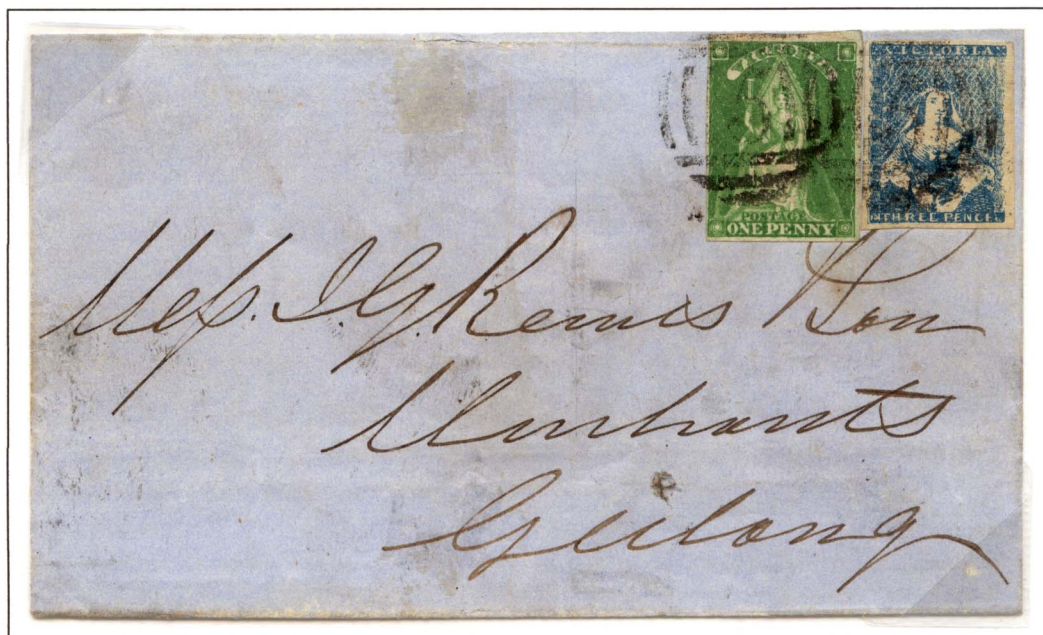 VICTORIA
POSTAGE
ONE PENNY
VICTORIA
THREE PENCE
Mess. I G
Merchants
Geelong